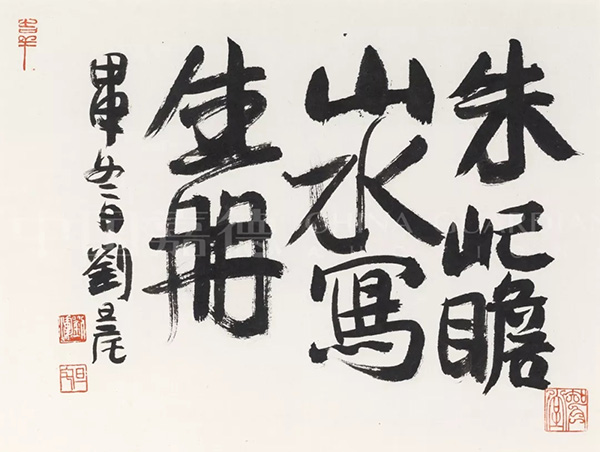 朱屺瞻
山水寫
生冊
劉旦宅
嘉德 CHINA GUARDIAN